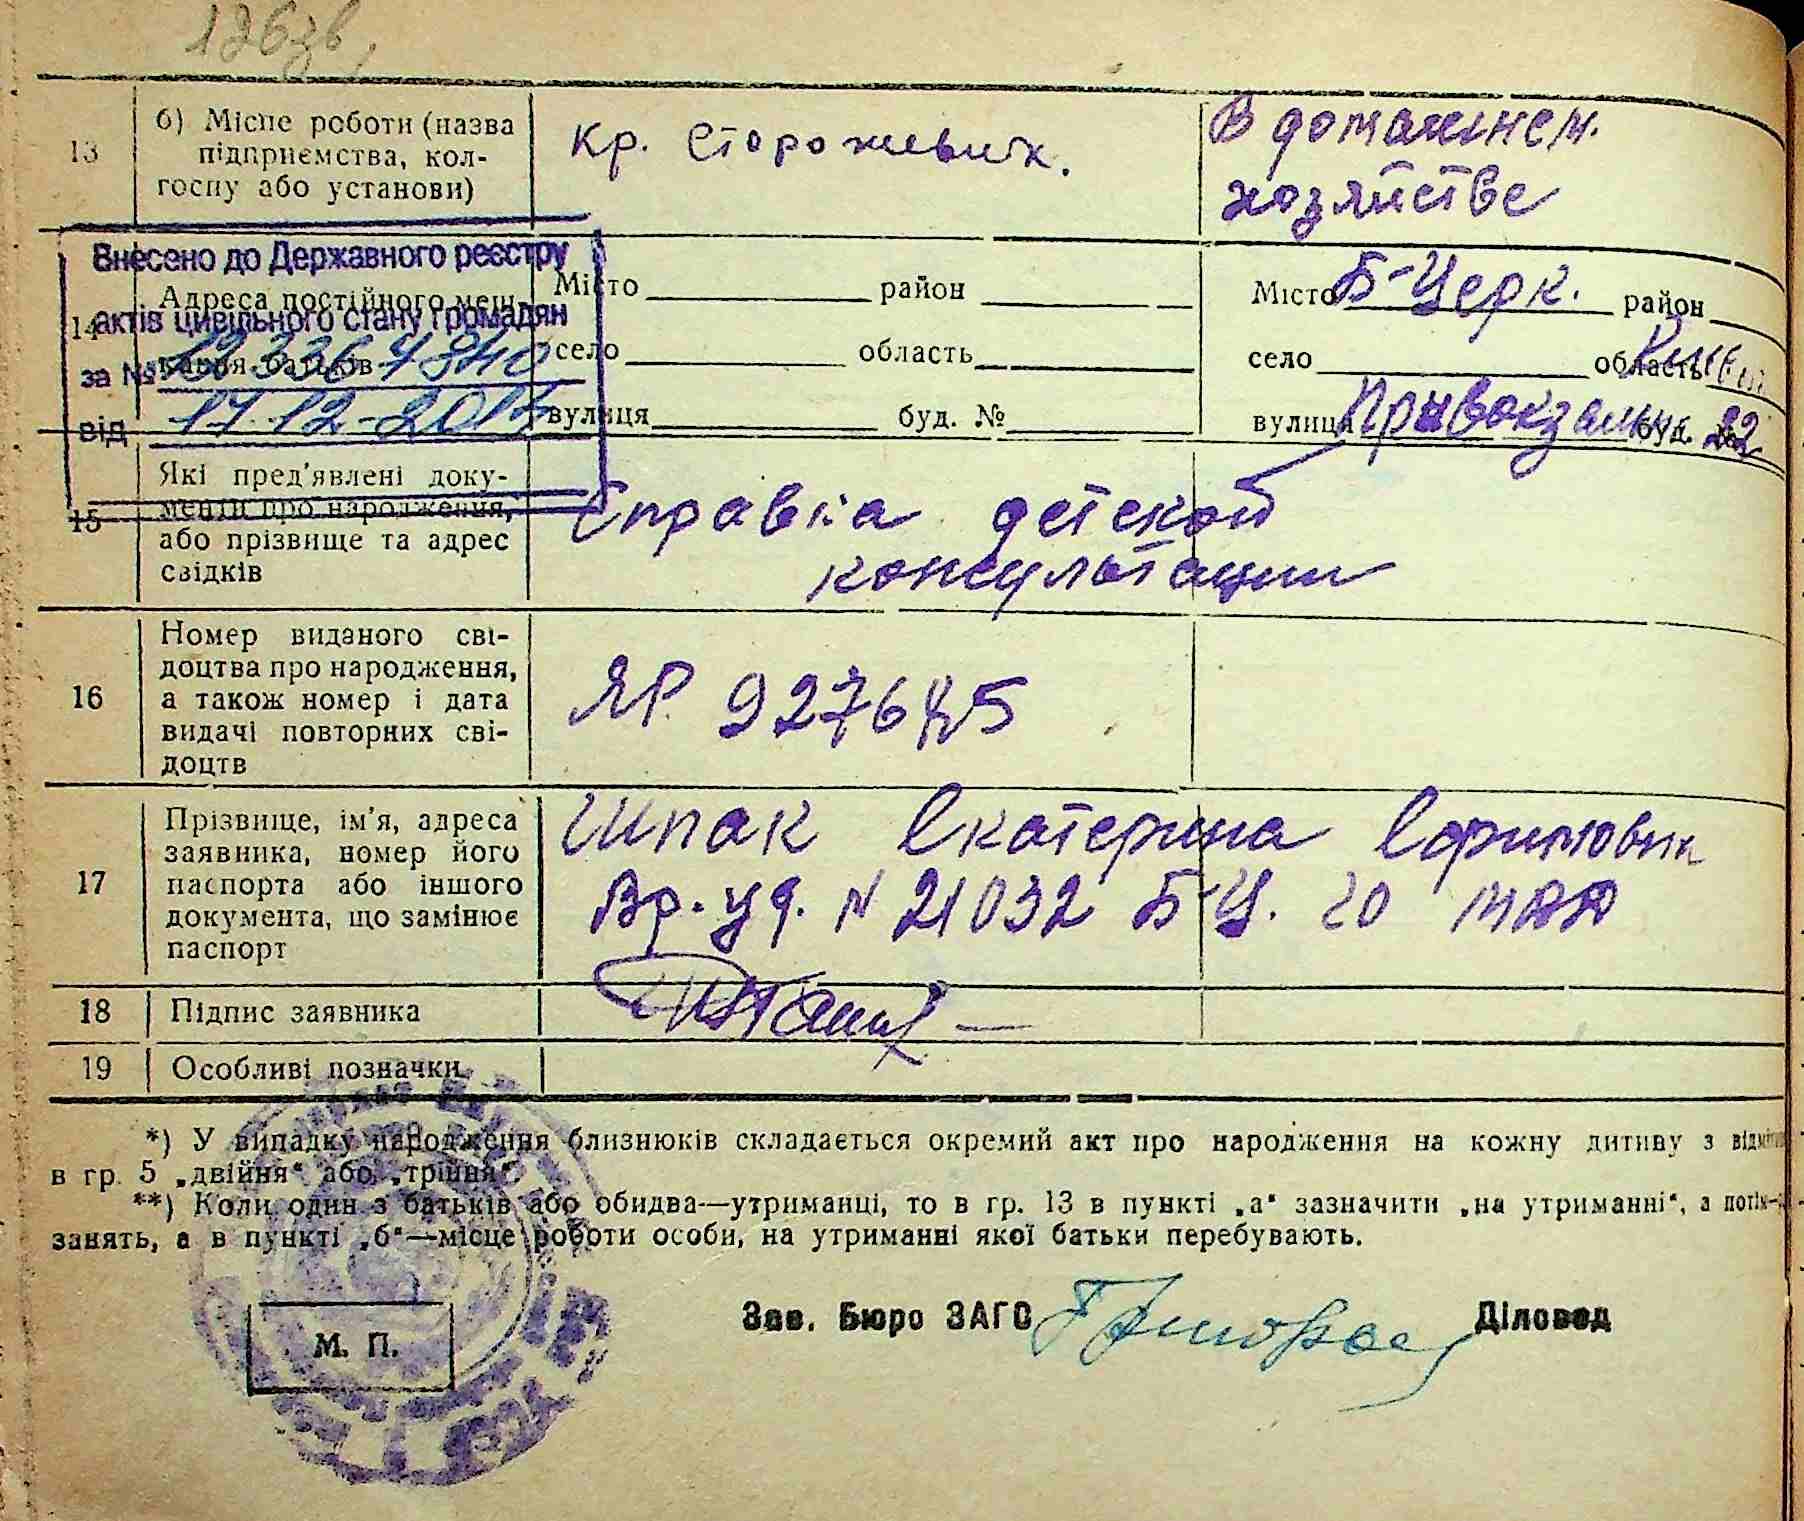 126зв,
13
б) Місце роботи (назва
підприємства, кол-
госпу або установи)
Кр. Сторожевих.
В домашнем.
хозяйстве
Внесено до Державного реєстру
актів цивільного стану громадян
за №
від 17.12-2015
14
Адреса постійного меш-
кання батьків
Місто район
село область
вулиця буд. №
Місто Б-Церк. район
село область Киев
вулиця Привокзальн буд. № 22
15
Які пред'явлені доку-
менти про народження,
або прізвище та адрес
свідків
Справка детской
консультации
16
Номер виданого сві-
доцтва про народження,
а також номер і дата
видачі повторних сві-
доцтв
ЯР
17
Прізвище, ім'я, адреса
заявника, номер його
паспорта або іншого
документа, що замінює
паспорт
Шпак Екатерина
Вр. уд. N 21032 Б-Ц. ГО
18
Підпис заявника
19
Особливі позначки
*) У випадку народження близнюків складається окремий акт про народження на кожну дитину з
в гр. 5 „двійня“ або „трійня“
**) Коли один з батьків або обидва—утриманці, то в гр. 13 в пункті „а“ зазначити „на утриманні“, а потім
занять, а в пункті „б“—місце роботи особи, на утриманні якої батьки перебувають.
Зав. Бюро ЗАГС
Діловод
М. П.